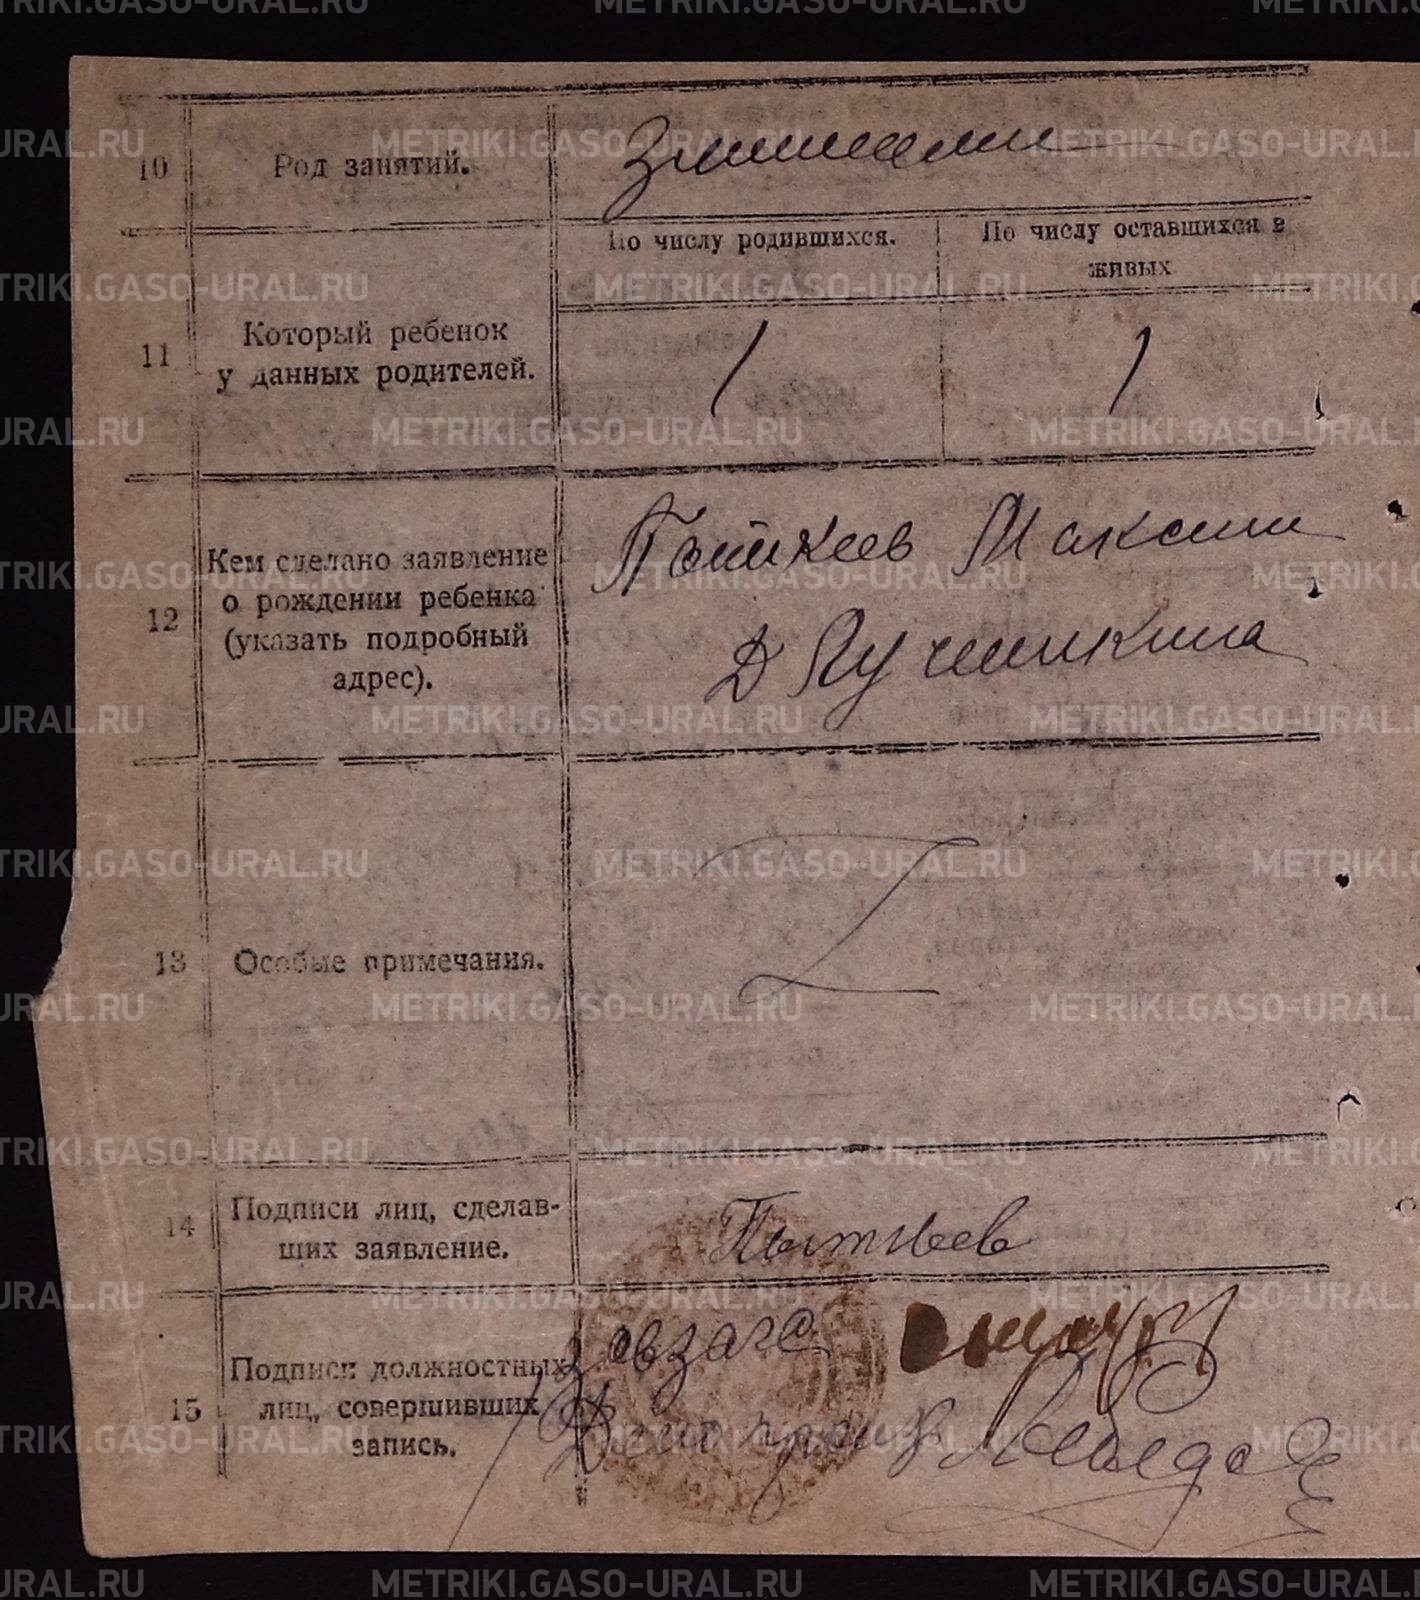 10 Род занятий.
По числу родившихся. По числу оставшихся в
живых
11 Который ребенок
у данных родителей.
1 1
12 Кем сделано заявление
о рождении ребенка
(указать подробный
адрес).
Максим
Д
13 Особые примечания.
Z
14 Подписи лиц, сделав-
ших заявление.
Пытьев
15 Подписи должностных
лиц, совершивших
запись.
Зав загс
METRIKI.GASO-URAL.RU